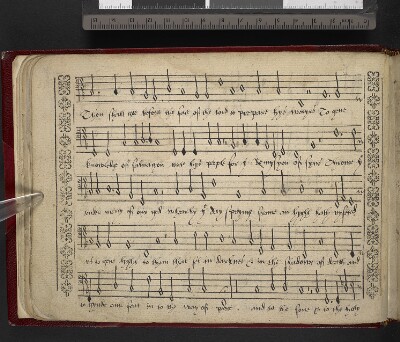 Thou shalt goe before the face of the lord to prepare hys wayes To geve
knowledge of salvacyon unto hys people for y Remyssyon of synes
tender mercy of our god wherby y day spryng from on hyghe hath vysyted
us to geve lyght to them that sit in darknes & in the shadowe of death and
to guyde our feet in to the way of peace and in the